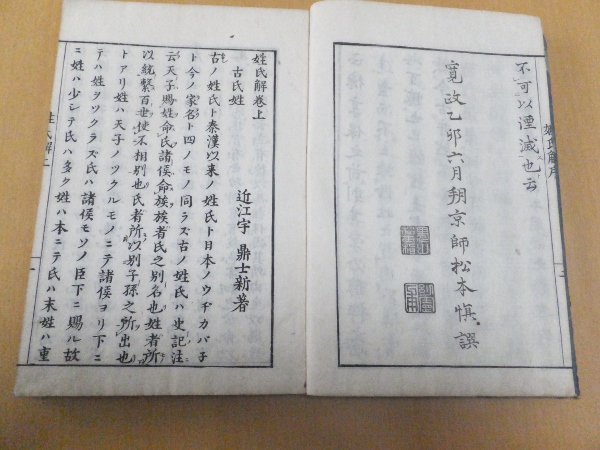 不可以湮滅也云
寛政乙卯六月朔京師松本愼譔
姓氏解序
姓氏解卷上
近江宇 鼎士新著
古氏姓
古ノ姓氏ト秦漢以来ノ姓氏ト日本ノウヂカバ子
ト今ノ家名ト四ノモノ同ラズ古ノ姓氏ハ史記注
云天子賜姓命氏諸侯命族族者氏之別名也姓者所
以統繫百世使不相別也氏者所以別子孫之所出也
トアリ姓ハ天子ノツクルモノニテ諸侯ヨリ下ニ
テハ姓ヲツクラズ氏ハ諸侯モソノ臣下ニ賜ル故
ニ姓ハ少シテ氏ハ多ク姓ハ本ニテ氏ハ末姓ハ重
姓氏解上
一